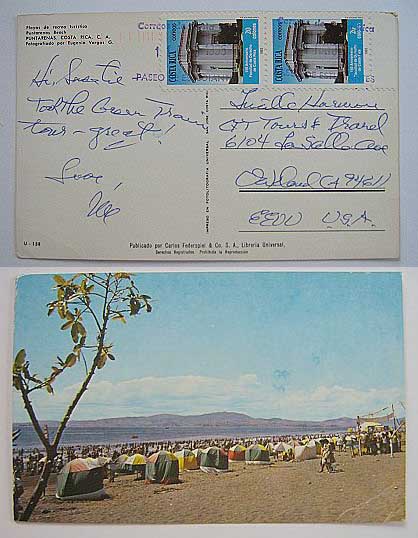 Playas de recreo turístico
Puntarenas Beach
PUNTARENAS, COSTA RICA, C. A.
Fotografiado por Eugenio Vargas G.
Correo
COSTA RICA
20
COSTA RICA
20
PASEO
Took the Green Train
tour - great!
Love,
Lucille Harmon
CTT Tours & Travel
6104 La Salle Ave
Oakland CA 94611
EEUU U.S.A.
IMPRESO EN FOTOLITOGRAFIA UNIVERSAL
U - 138
Publicado por Carlos Federspiel & Co. S. A., Librería Universal,
Derechos Registrados - Prohibida la Reproducción